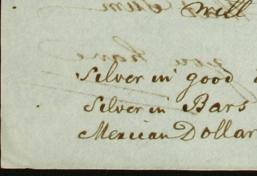 will
Silver in good
Silver in Bars
Mexican Dollar